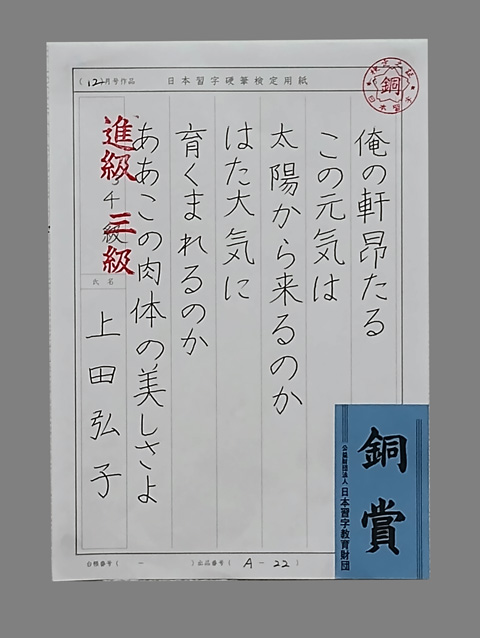 (12)月号作品
日本習字硬筆検定用紙
検定之証
銅
日本習字
俺の軒昂たる
この元気は
太陽から来るのか
はた大気に
育くまれるのか
ああこの肉体の美しさよ
進級 三級
4級
氏名
上田弘子
( - )出品番号( A-22 )
銅賞
公益財団法人 日本習字教育財団